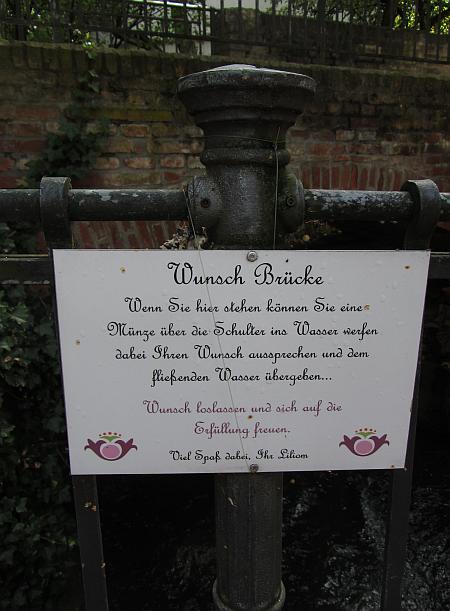 Wunsch Brücke
Wenn Sie hier stehen können Sie eine
Münze über die Schulter ins Wasser werfen
dabei Ihren Wunsch aussprechen und dem
fließenden Wasser übergeben...
Wunsch loslassen und sich auf die
Erfüllung freuen.
Viel Spaß dabei, Ihr Liliom